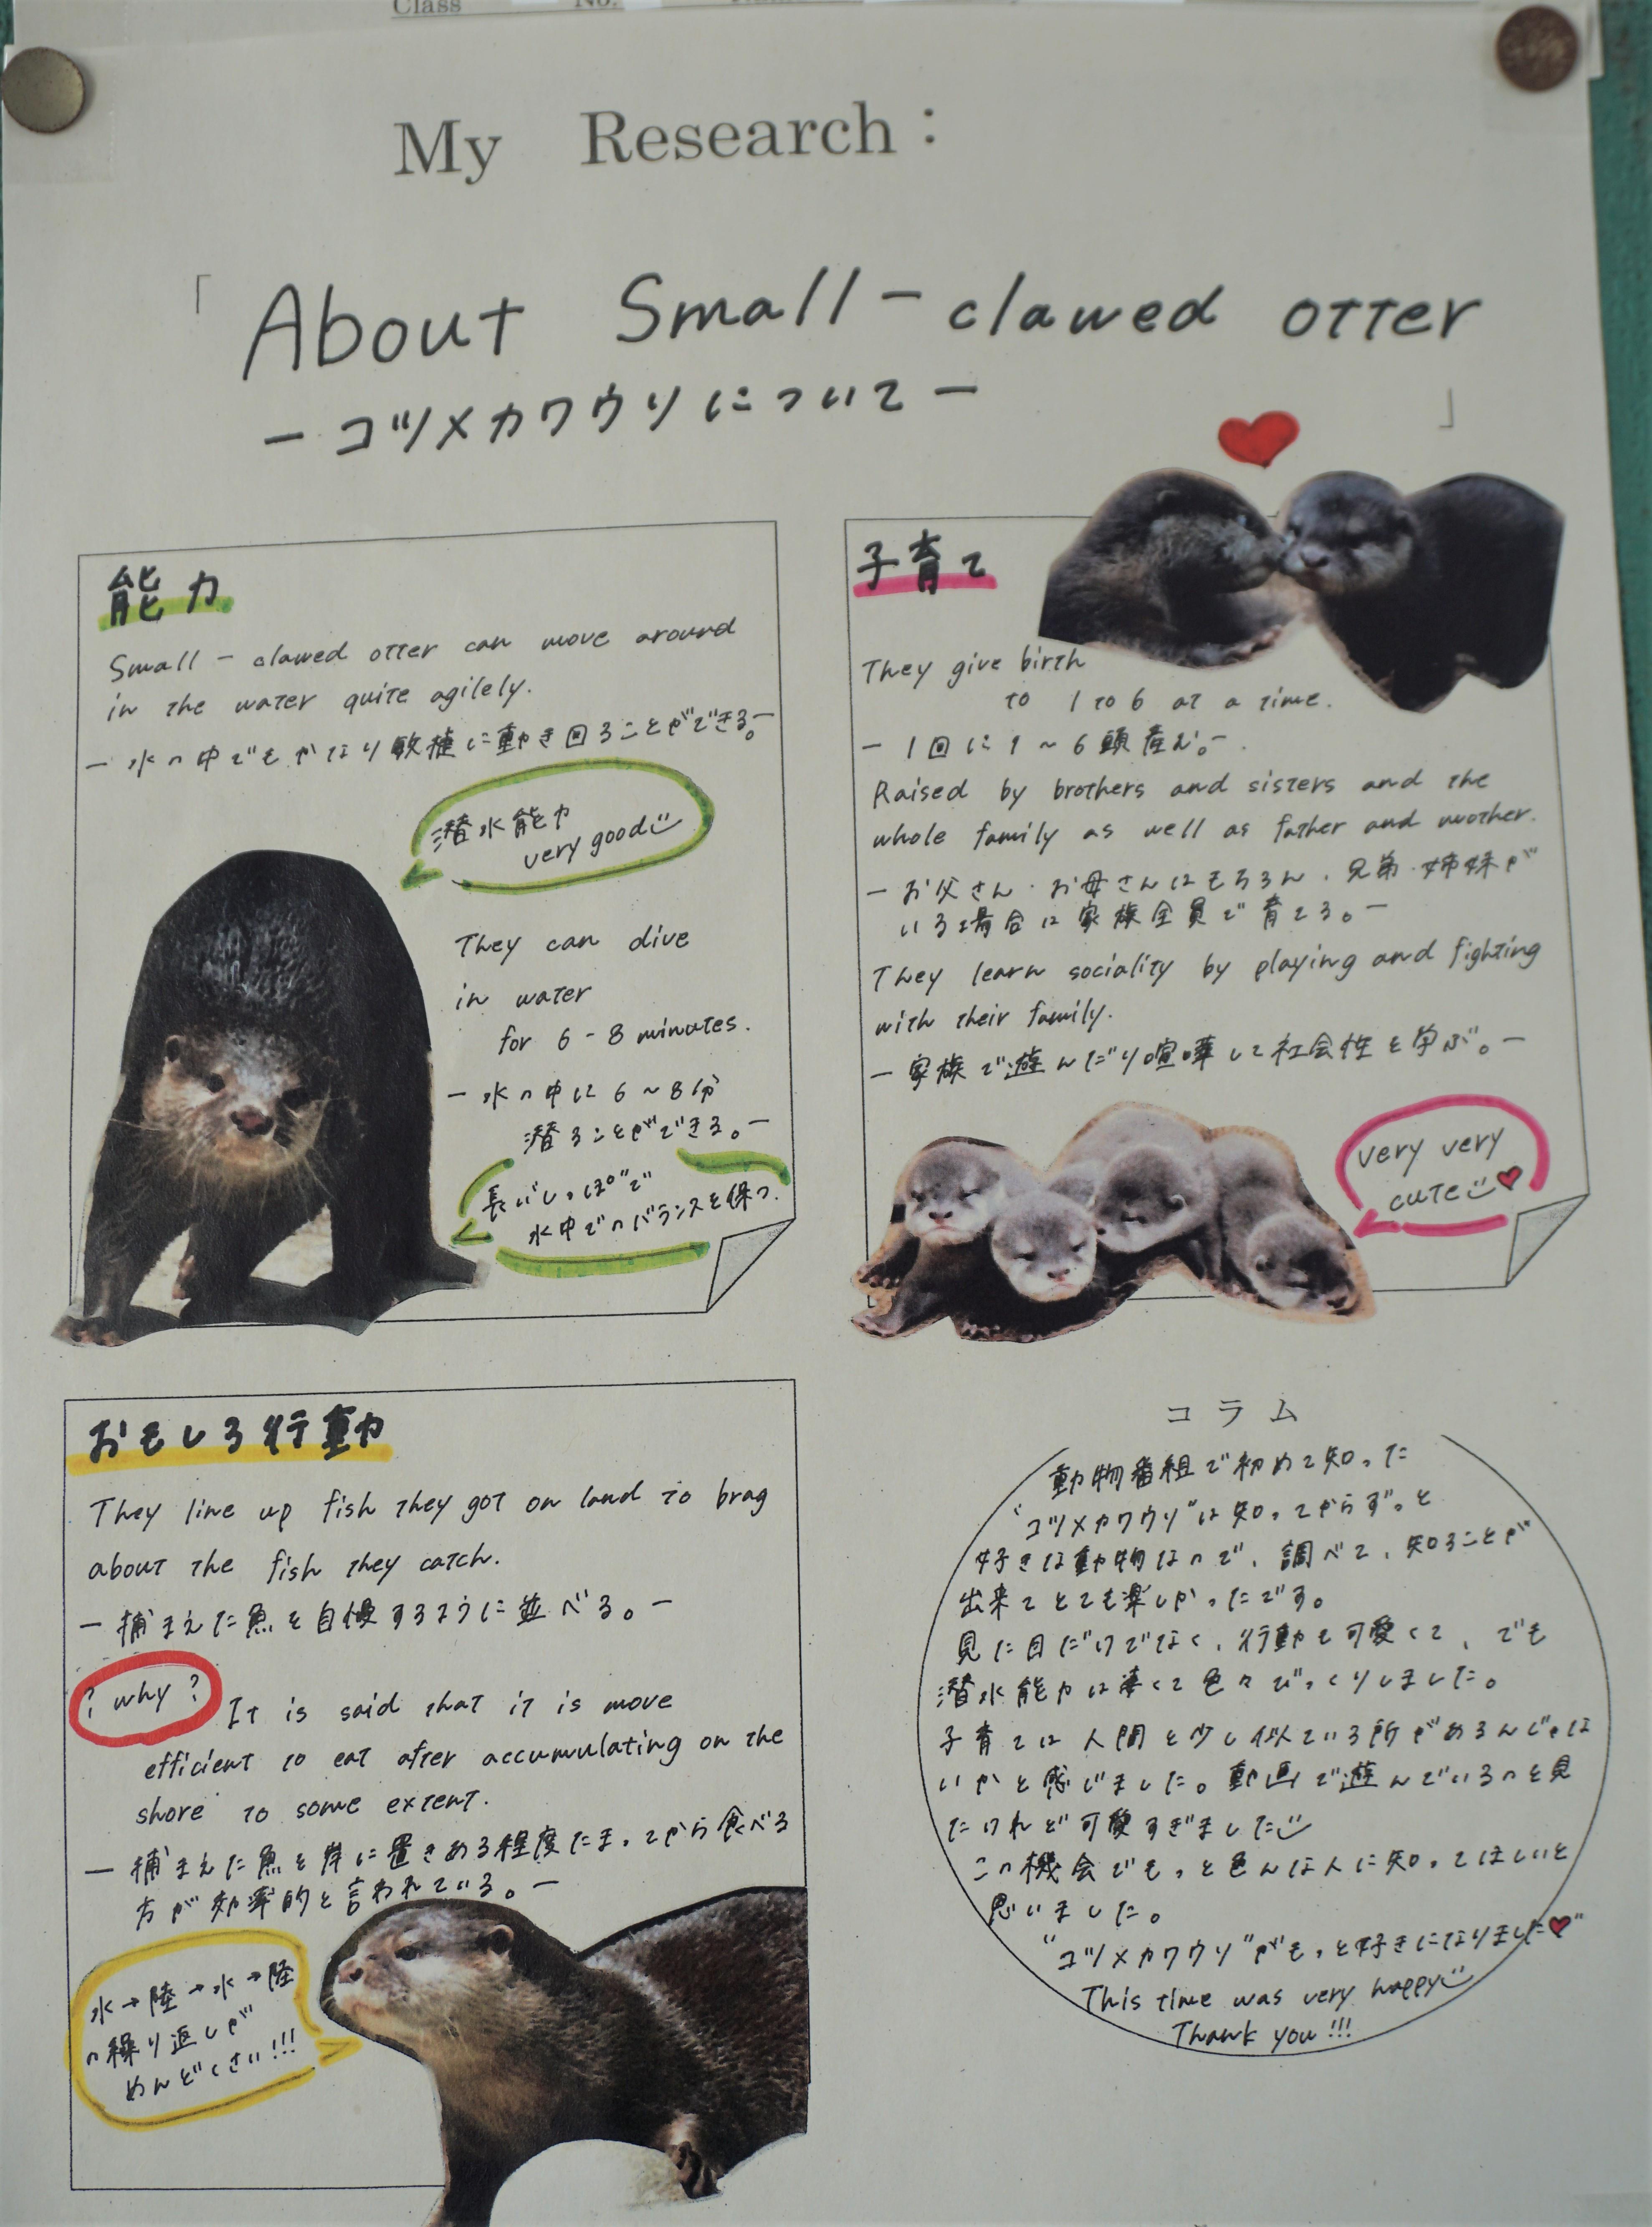 Class No.
My Research：
「About Small-clawed otter
ーコツメカワウソについてー
」
能力
Small-clawed otter can move around
in the water quite agilely.
ー水の中でもかなり敏捷に動き回ることができる。ー
潜水能力
very good
They can dive
in water
for 6-8 minutes.
ー水の中に6〜8分
潜ることができる。ー
長いしっぽで
水中でのバランスを保つ.
子育て
They give birth
to 1 to 6 at a time.
ー1回に1〜6頭産む。ー
Raised by brothers and sisters and the
whole family as well as father and mother.
ーお父さん・お母さんはもちろん、兄弟・姉妹が
いる場合は家族全員で育てる。ー
They learn sociality by playing and fighting
with their family.
ー家族で遊んだり喧嘩して社会性を学ぶ。ー
very very
cute
おもしろ行動
They line up fish they got on land to brag
about the fish they catch.
ー捕まえた魚を自慢するように並べる。ー
? why ?
It is said that it is move
efficient to eat after accumulating on the
shore to some extent.
ー捕まえた魚を岸に置きある程度たまってから食べる
方が効率的と言われている。ー
水→陸→水→陸
の繰り返しが
めんどくさい!!!
コラム
動物番組で初めて知った
"コツメカワウソ"は知ってからずっと
好きな動物なので、調べて、知ることが
出来てとても楽しかったです。
見た目だけでなく、行動も可愛くて、でも
潜水能力は凄くて色々びっくりしました。
子育ては人間と少し似ている所があるんじゃな
いかと感じました。動画で遊んでいるのを見
たけれど可愛すぎました
この機会でもっと色んな人に知ってほしいと
思いました。
"コツメカワウソ"がもっと好きになりました♥"
This time was very happy
Thank you!!!